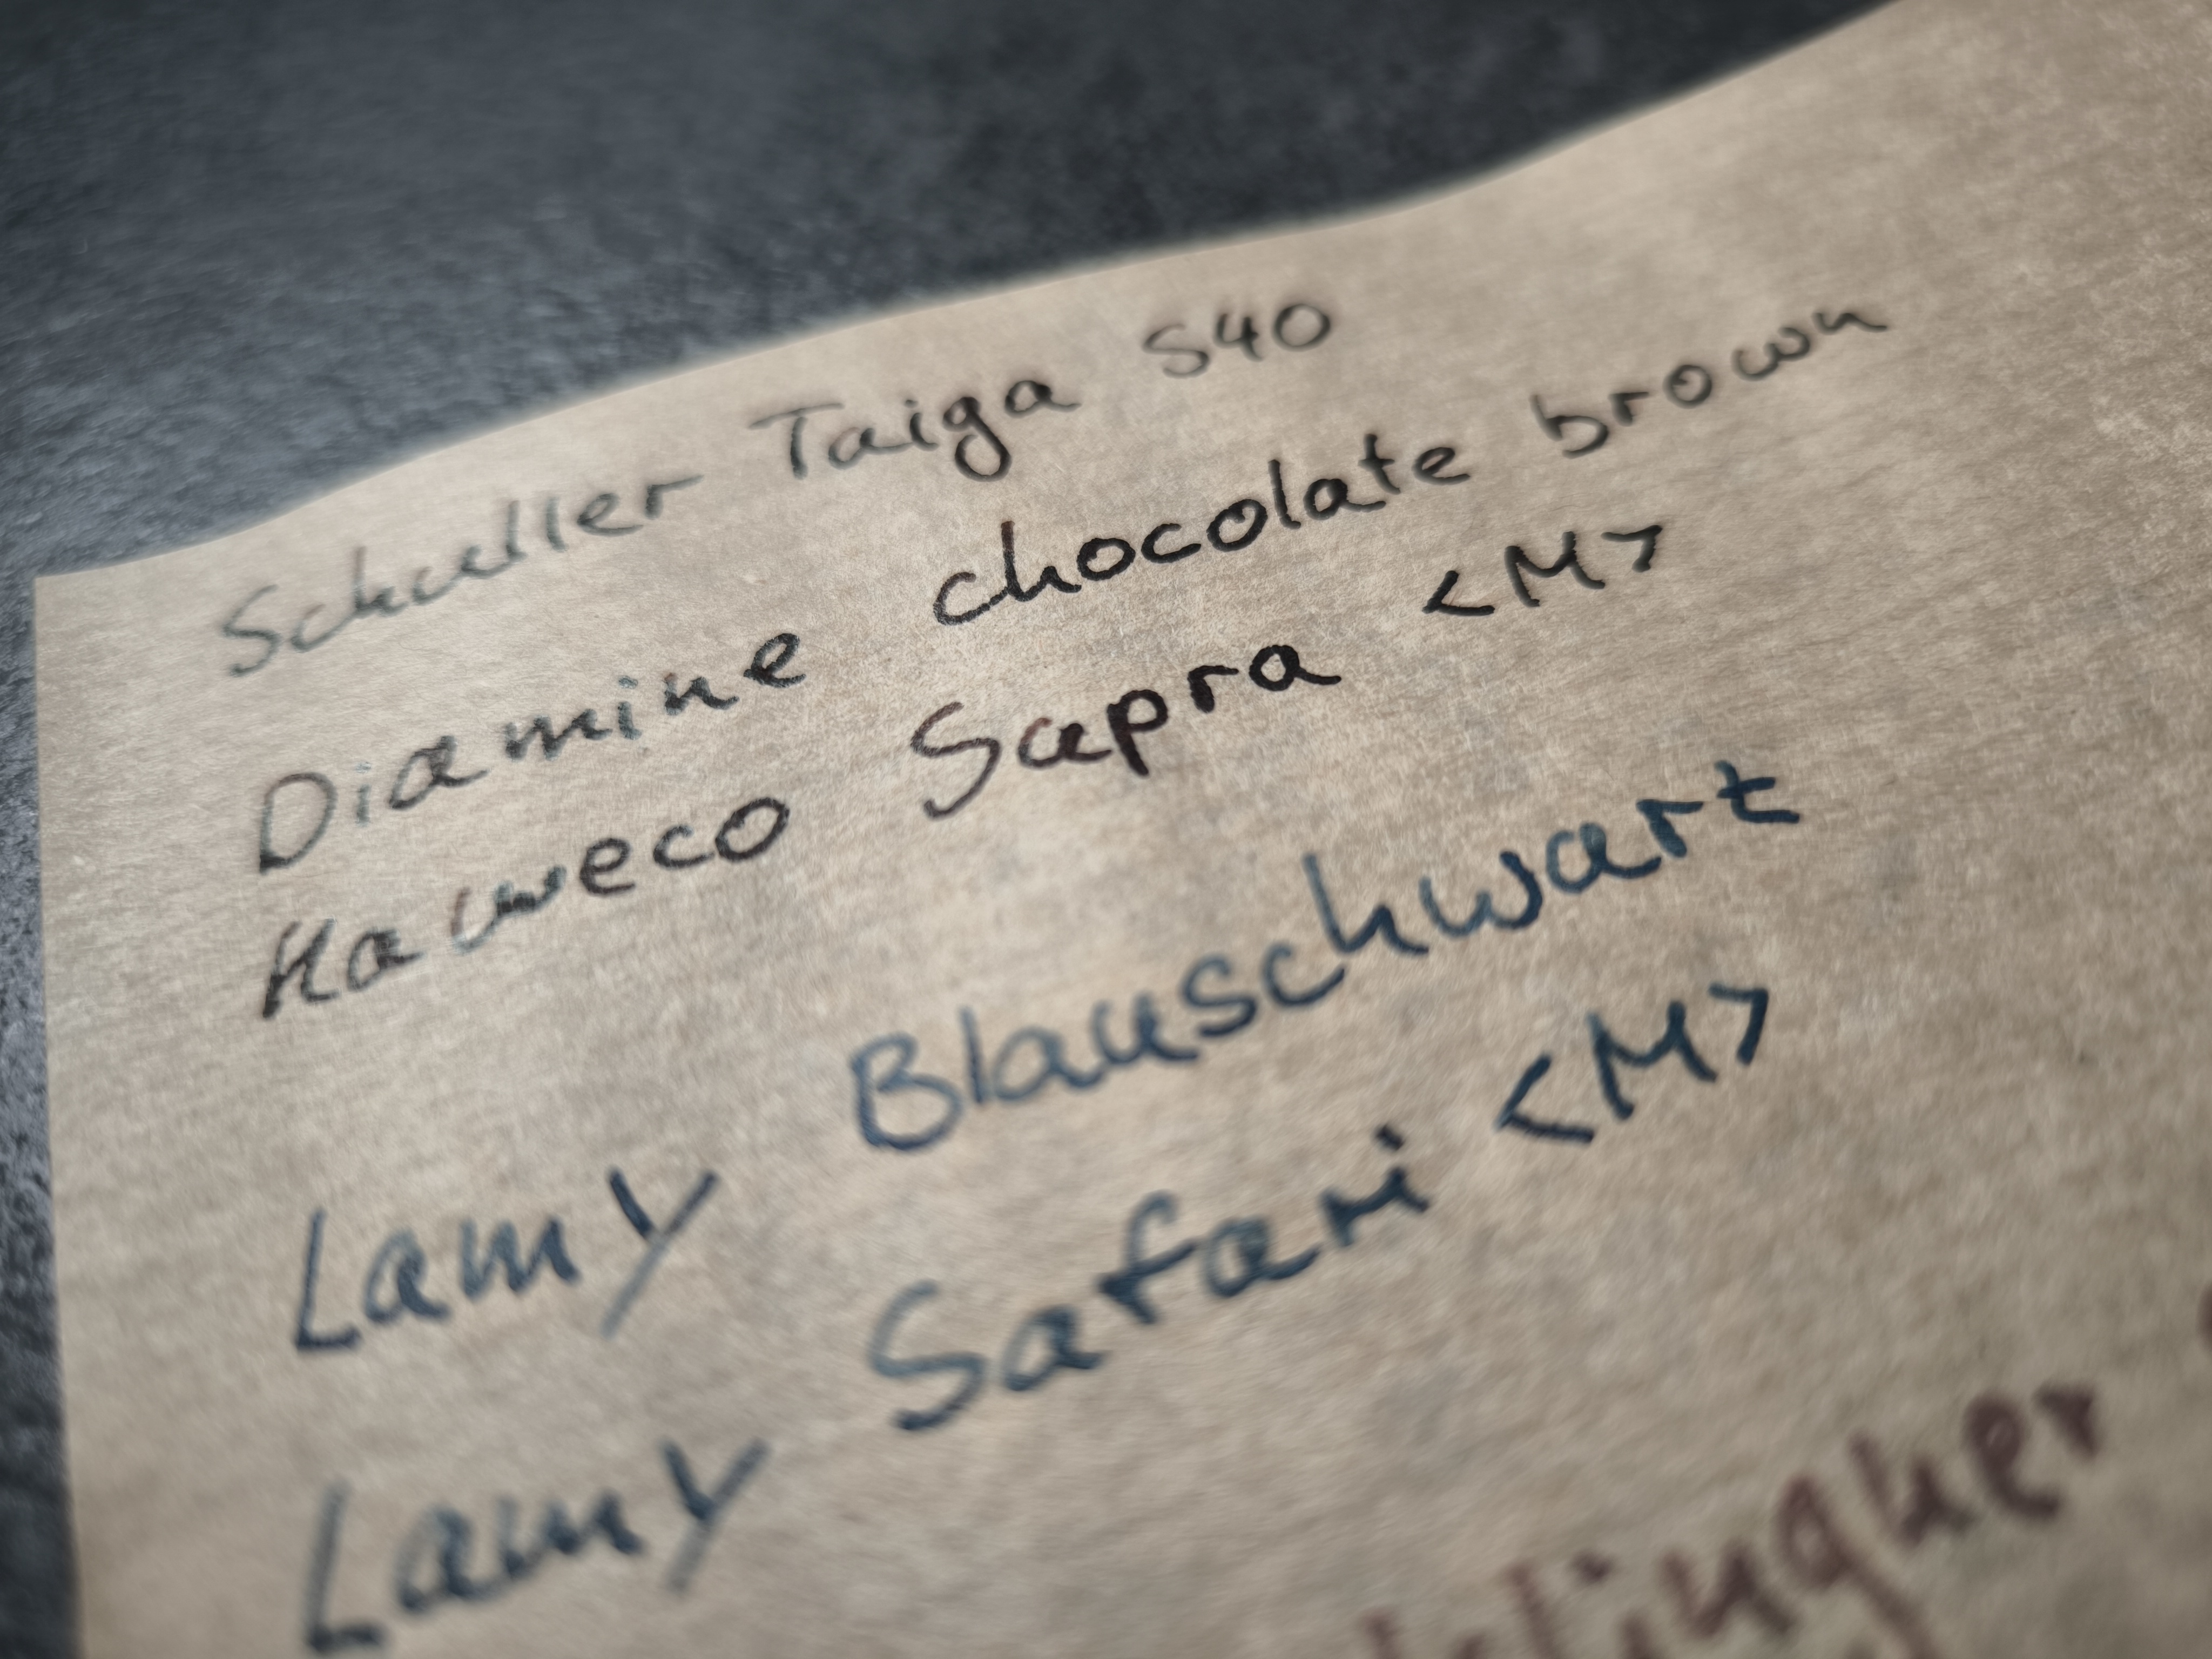 Schuller Taiga S40
Diamine chocolate brown
Kaweco Supra <M>
Lamy Blauschwarz
Lamy Safari <M>